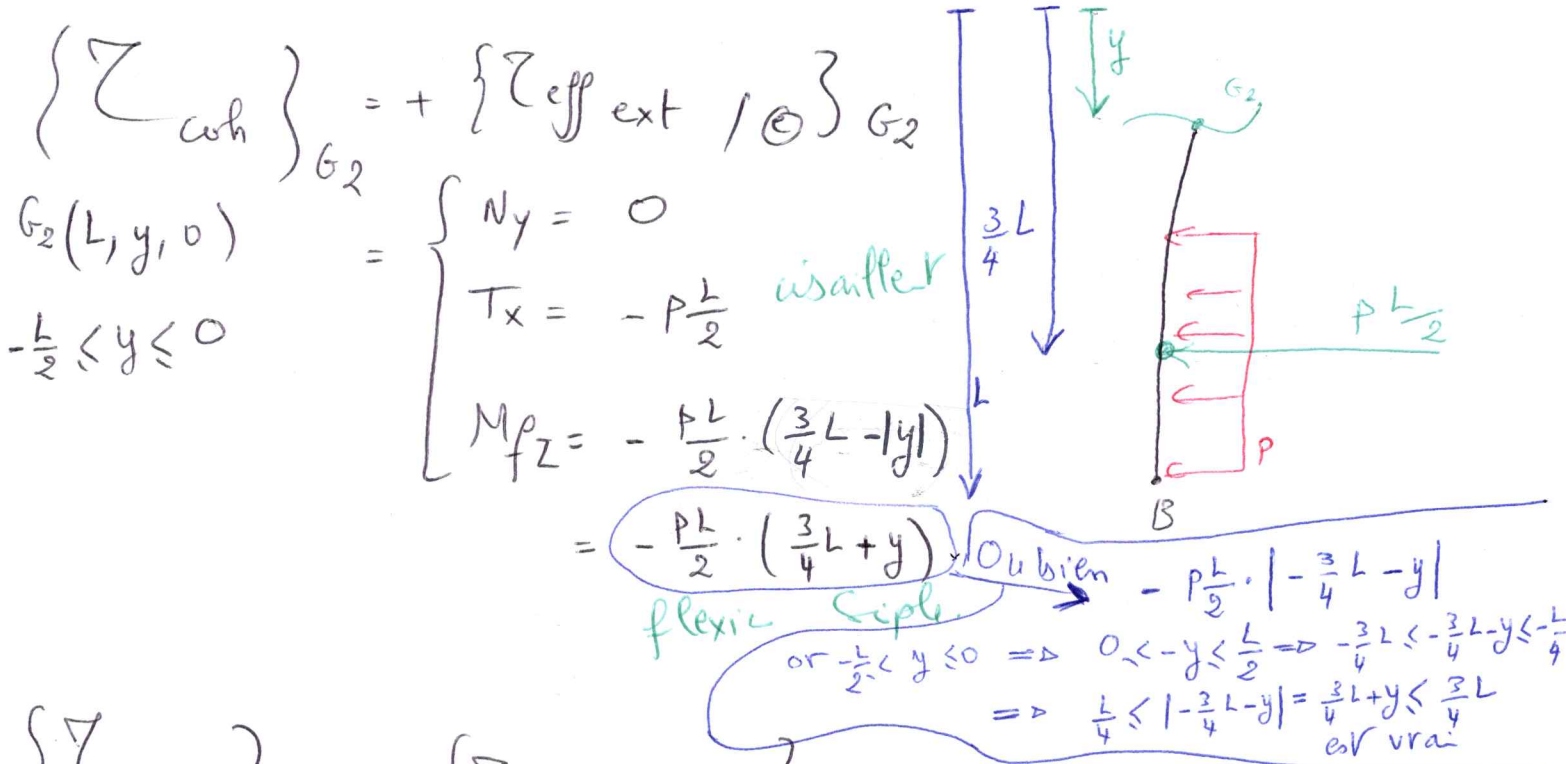 {τ coh}_G2 = + {τ eff ext / ②}_G2
G2 (L, y, 0)
-L/2 ≤ y ≤ 0
= { Ny = 0
Tx = - p L/2
Mfz = - pL/2 · (3/4 L - |y|)
= - pL/2 · (3/4 L + y)
Ou bien - p L/2 · |- 3/4 L - y|
or -L/2 ≤ y ≤ 0 => 0 ≤ -y ≤ L/2 => -3/4 L ≤ -3/4 L - y ≤ -L/4
=> L/4 ≤ |-3/4 L - y| = 3/4 L + y ≤ 3/4 L
est vrai
y
G2
3/4 L
L
p L/2
p
B